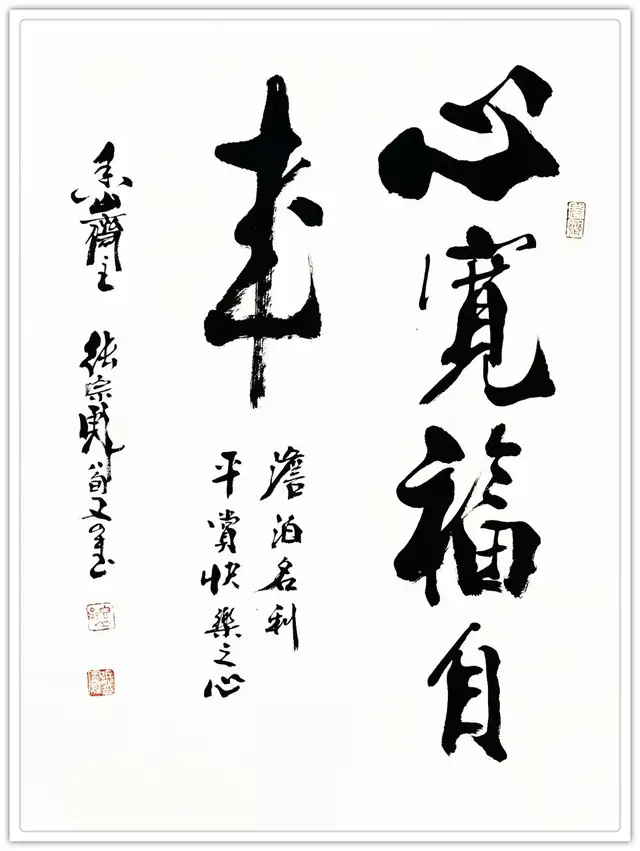 心寬福自
來
澹泊名利
平賞快樂之心
山齋主
張宗 八旬又 書